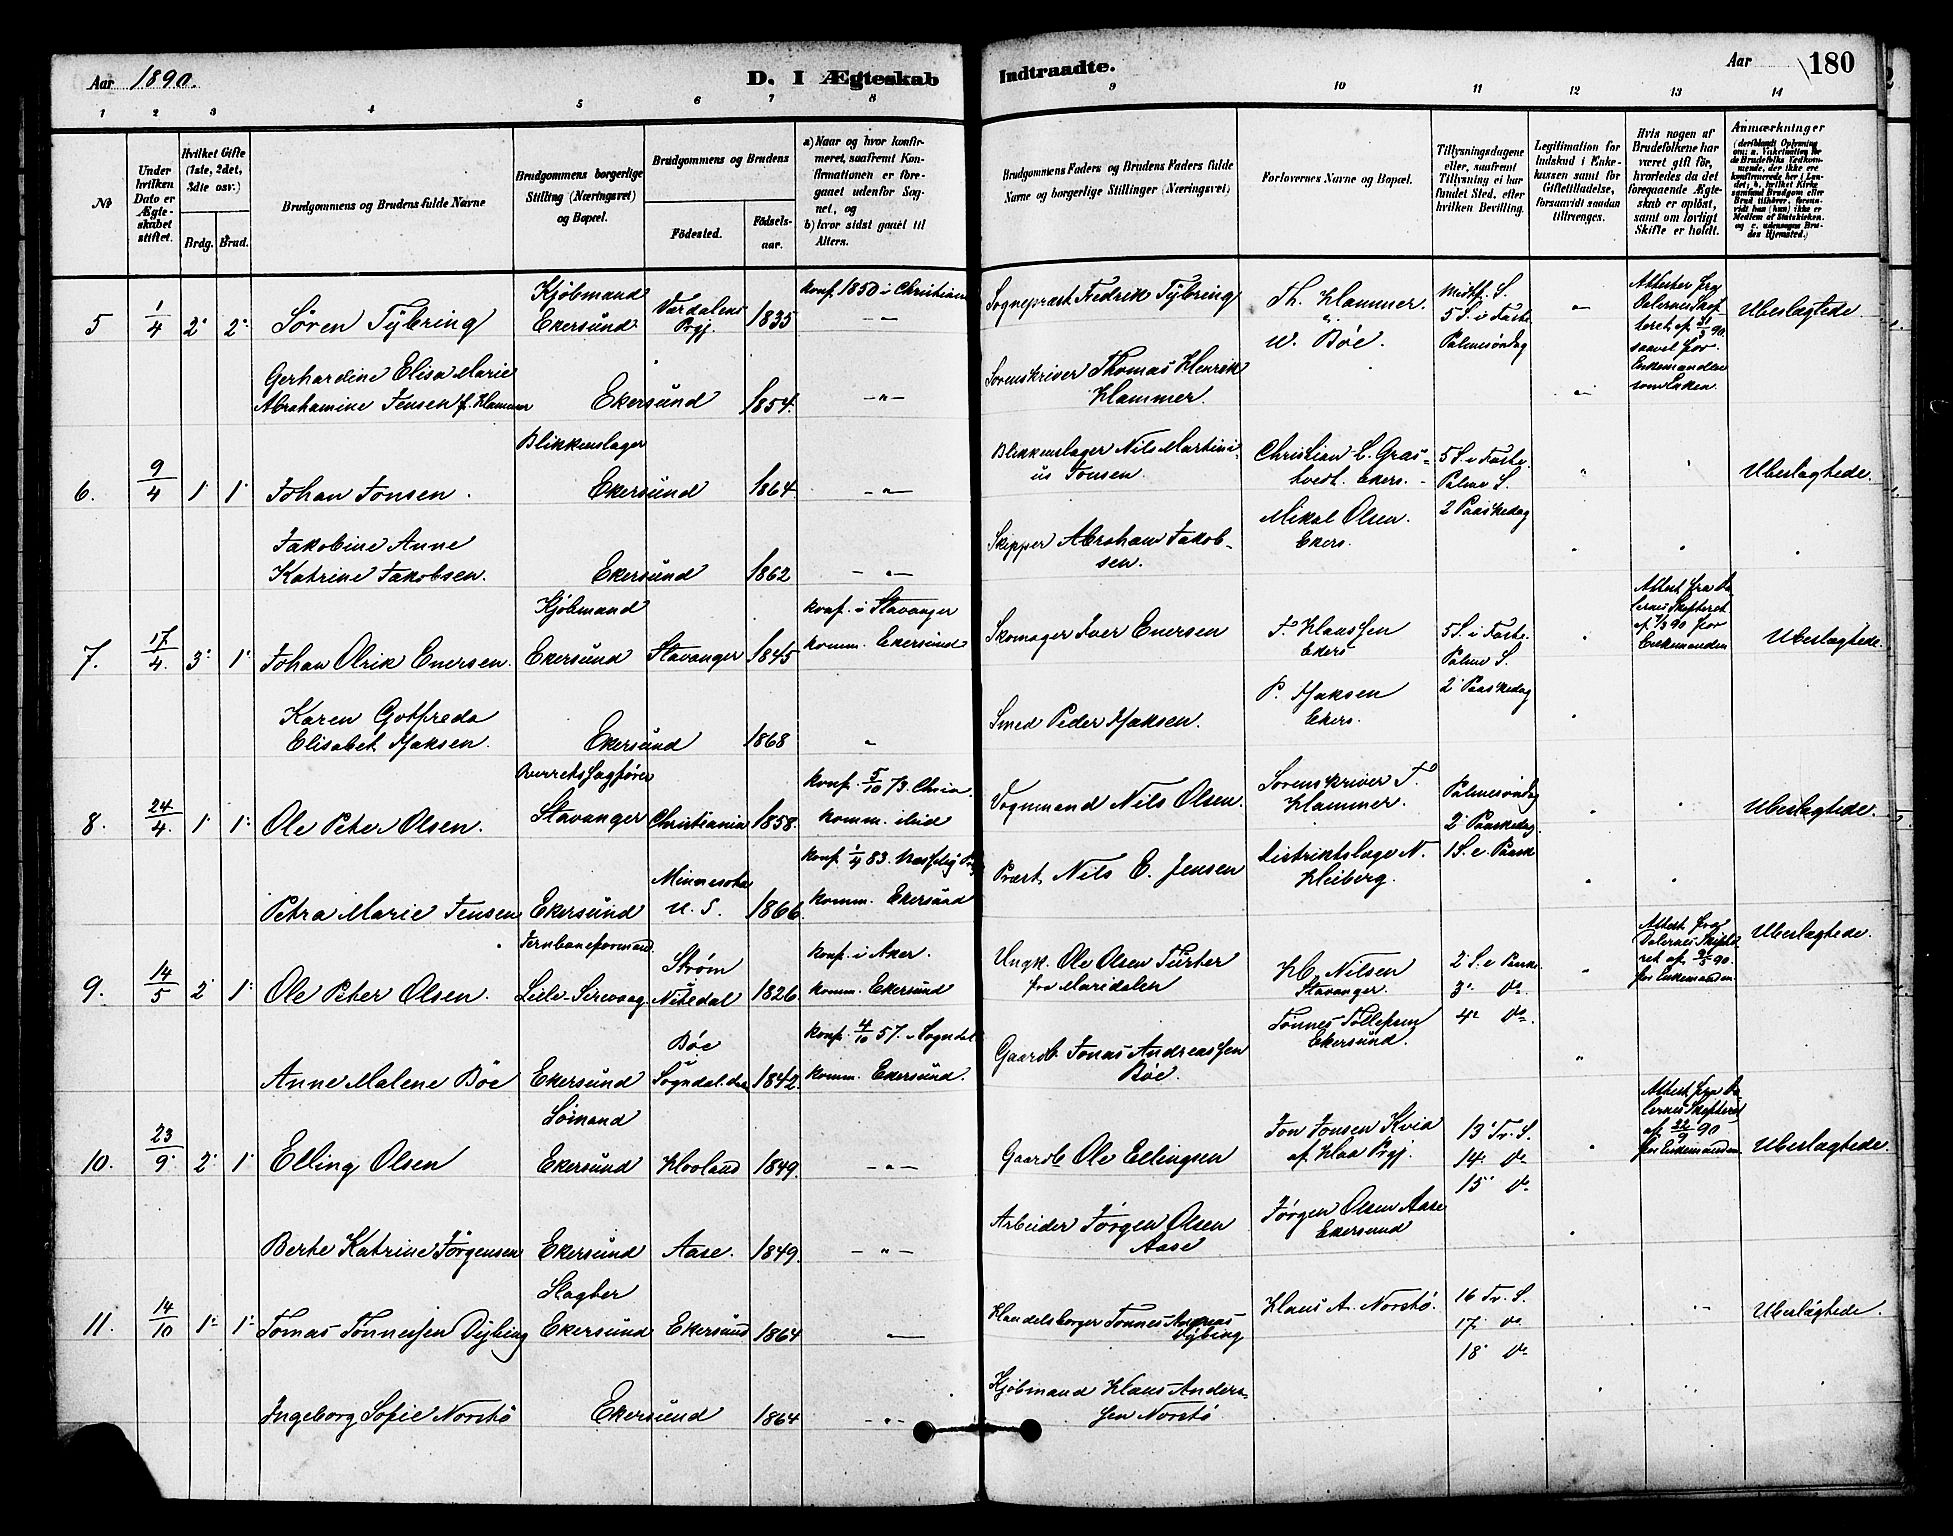 Aar 1890.
D. I Ægteskab
Indtraadte.
Aar
180
1 2 3 4 5 6 7 8 9 10 11 12 13 14
No
Under hvilken Dato er Ægteskabet stiftet.
Hvilket Gifte (1ste, 2det, 3die osv.)
Brdg. Brud.
Brudgommens og Brudens fulde Navne
Brudgommens borgerlige Stilling (Næringsvei) og Bopæl.
Brudgommens og Brudens
Födested.
Födselsaar.
a) Naar og hvor konfirmeret, saafremt Konfirmationen er foregaaet udenfor Sognet, og
b) hvor sidst gaaet til Alters.
Brudgommens Faders og Brudens Faders fulde Navne og borgerlige Stillinger (Næringsvei)
Forlovernes Navne og Bopæl.
Tillysningsdagene eller, saafremt Tillysning ei har fundet Sted, efter hvilken Bevilling.
Legitimation for Indskud i Enkekassen samt for Giftetilladelse, forsaavidt saadan tiltrænges.
Hvis nogen af Brudefolkene har været gift för, hvorledes da det foregaaende Ægteskab er oplöst, samt om lovligt Skifte er holdt.
Anmærkninger
5 1/4 2' 2' Sören Tybring Kjöbmand Ekersund Værdalens Prgj. 1835 konf. 1850 i Christiania Sognepræst Fredrik Tybring Th. Hammer. W. Böe. Midtf. S. 5 S. i Faste. Palmesöndag Ubeslægtede.
Gerhardine Elisa Marie Abrahamine Jensen f. Hammer Ekersund 1854. Sorenskriver Thomas Henrik Hammer. saavel for Enkemanden som Enken.
6. 9/4 1' 1' Johan Jonsen. Blikkenslager Ekersund 1864 Blikkenslager Nils Martinius Jonsen. 5 S. i Faste. Palme S. 2 Paaskedag Ubeslægtede.
Jakobine Anne Katrine Jakobsen. Ekersund 1862 Skipper Abraham Jakobsen. Mikal Olsen. Ekers.
7. 17/4. 3' 1' Johan Olrik Enersen. Kjöbmand Ekersund Stavanger 1845 konf. i Stavanger komm. Ekersund Skomager Iver Enersen Ekers 5 S. i Faste. Palme S. 2' Paaskedag Enkemanden Ubeslægtede.
Karen Gotfreda Elisabet Isaksen. Ekersund 1868 Smed Peder Isaksen. P. Isaksen Ekers.
8. 24/4. 1' 1' Ole Peter Olsen. Overretssagförer Stavanger Christiania 1858. konf. 5/10 73. Chria. komm. ibid Vognmand Nils Olsen. Sorenskriver T. Hammer. Palmesöndag 2' Paaskedag. 1 S. e. Paask Ubeslægtede.
Petra Marie Jensen Ekersund Minnesota U. S. 1866. konf. 1/4 83. komm. Ekersund Præst Nils E. Jensen Distriktslæge N. Heiberg.
9. 14/5 2' 1' Ole Peter Olsen. Jernbaneformand. Leile-Sirevaag. Ström Nitedal 1826. konf. i Aker. komm. Ekersund Ungk. Ole Olsen fra Maridalen Nilsen Stavanger. 2' S. e Paaske. 3' Do. 4' Do. for Enkemanden Ubeslægtede.
Anne Malene Böe Ekersund Böe Sogndal 1842. konf. 4/10 57. i Sogndal komm. Ekersund. Gaardb. Jonas Andreassen Böe. Tönnes Tollefsen Ekersund.
10. 23/9. 2' 1' Elling Olsen Sömand Ekersund Hovland 1849. Gaardb. Ole Ellingsen Jon Jonsen Kvia af Haa Prgj. 13' Tr. S. 14' Do 15' Do Attest fra Dalernes Skifteret af 22/9 90 for Enkemanden. Ubeslægtede.
Berte Katrine Jörgensen Ekersund Aase. 1849. Arbeider Jörgen Olsen Aase Jörgen Olsen Aase Ekersund
11. 14/10 1' 1' Tomas Tönnessen Dybing Slagter Ekersund Ekersund 1864 Handelsborger Tönnes Dybing Klaus A. Norstö. 16 Tr. S. 17. Do 18' Do Ubeslægtede.
Ingeborg Sofie Norstö Ekersund 1864 Kjöbmand Klaus Anderssen Norstö